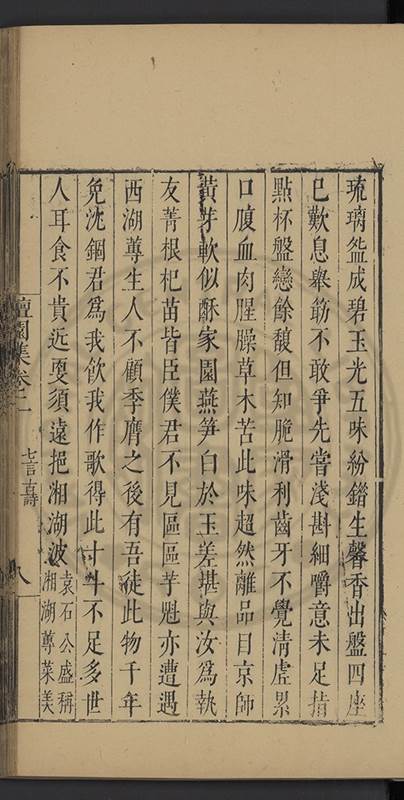 琉璃盌成碧玉光五味紛錯生馨香出盤四座
已歎息舉筯不敢爭先嘗淺斟細嚼意未足指
點杯盤戀餘馥但知脆滑利齒牙不覺清虛累
口腹血肉腥臊草木苦此味超然離品目京師
黃芽軟似酥家園燕笋白於玉差堪與汝爲執
友菁根杞苗皆臣僕君不見區區芋魁亦遭遇
西湖蓴生人不顧季鷹之後有吾徒此物千年
免沈錮君爲我飲我作歌得此十斗不足多世
人耳食不貴近更須遠挹湘湖波袁石公盛稱
湘湖蓴菜美
檀園集卷二
七言古詩
八